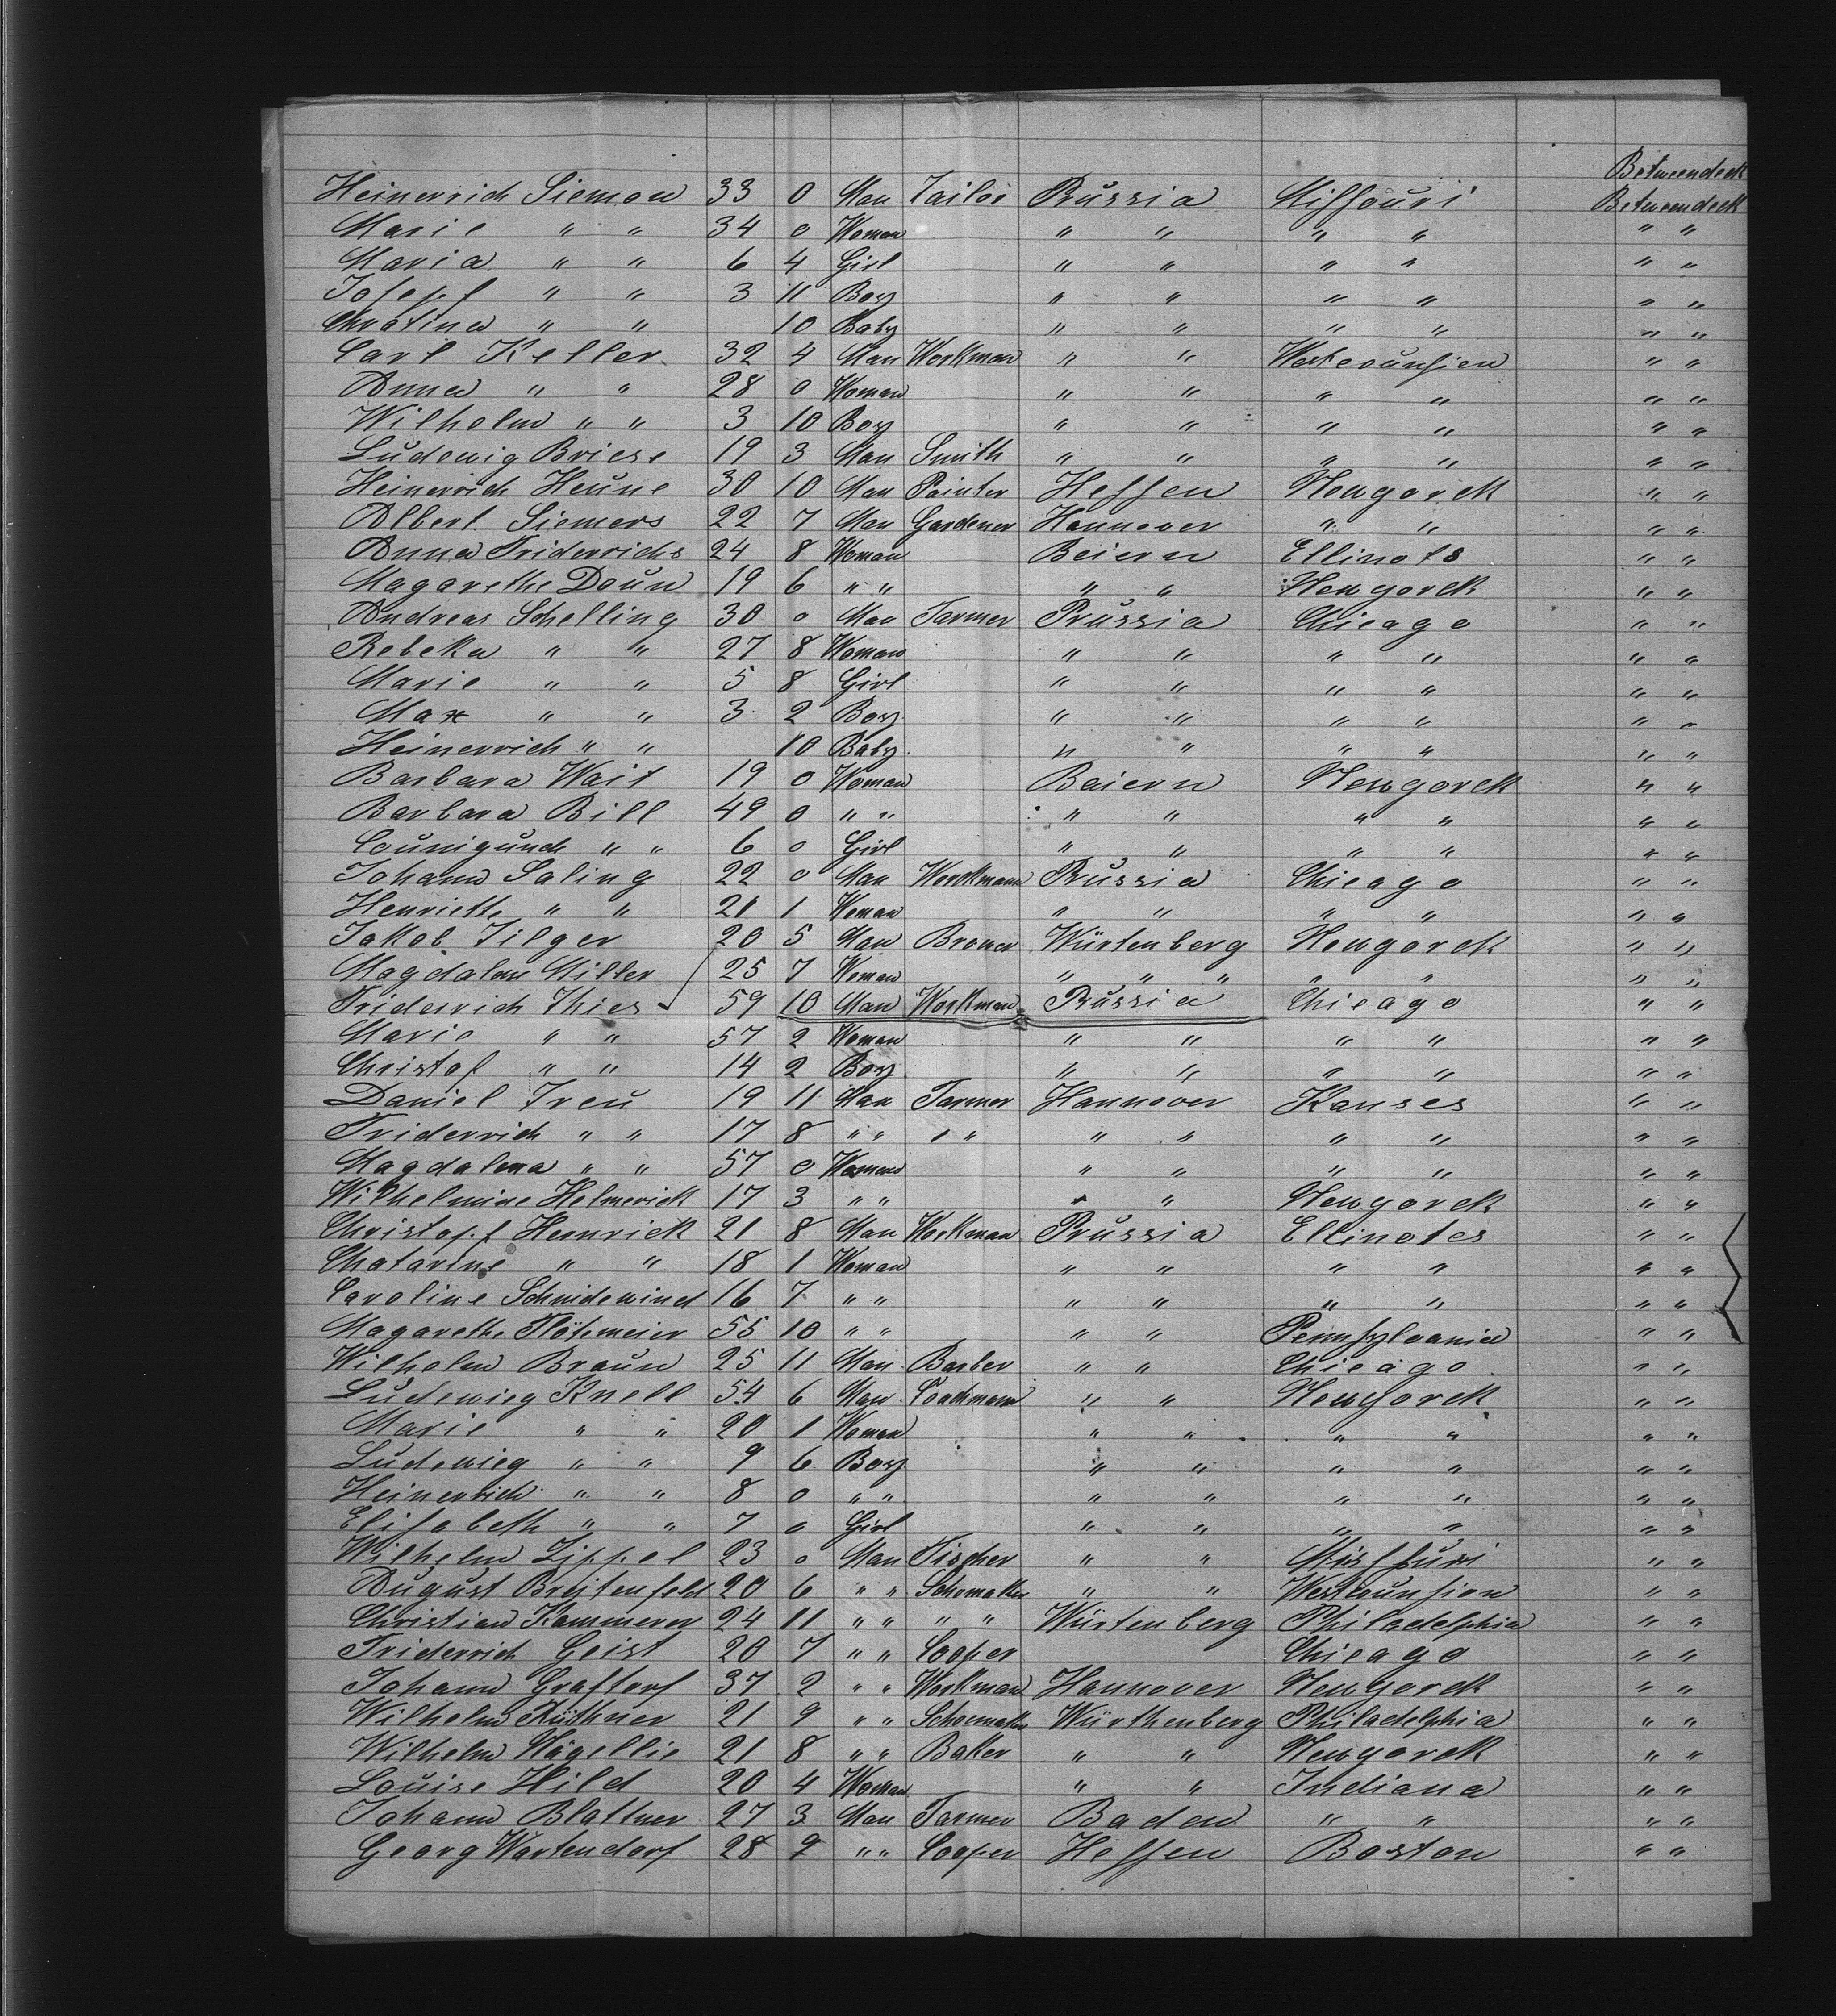 Betweendeck
Heinerrich Siemon 33 0 Man Tailor Prussia Missouri Betweendeck
Marie " " 34 0 Woman " " " " " "
Maria " " 6 4 Girl " " " " " "
Josepf " " 3 11 Boy " " " " " "
Christina " " 10 Baby " " " " " "
Carl Keller 32 4 Man Workman " " " "
Anna " " 28 0 Woman " " " " " "
Wilhelm " " 3 10 Boy " " " " " "
Ludewig Briese 19 3 Man Smith " " " " " "
Heinerrich Heune 30 10 Man Painter Hessen Newyorck " "
Albert Siemers 22 7 Man Gardener Hannover " " " "
Anna Friderrichs 24 8 Woman Beiern Ellinots " "
Magarethe Daun 19 6 " " " " Newyorck " "
Andreas Schelling 30 0 Man Farmer Prussia Chicago " "
Rebeka " " 27 8 Woman " " " " " "
Marie " " 5 8 Girl " " " " " "
Max " " 3 2 Boy " " " " " "
Heinerrich " " 10 Baby " " " " " "
Barbara Wait 19 0 Woman Baiern Newyorck " "
Barbara Bill 49 0 " " " " " " " "
Counigunde " " 6 0 Girl " " " " " "
Johann Saling 22 0 Man Workmann Prussia Chicago " "
Henriette " " 21 1 Woman " " " " " "
Jakob Tilger 20 5 Man Brower Würtenberg Newyorck " "
Magdalene Miller 25 7 Woman " " " " " " "
Friderrich Thies 59 10 Man Workman Prussia Chicago " "
Marie " " 57 2 Woman " " " " " "
Christof " " 14 2 Boy " " " " " "
Daniel Treu 19 11 Man Farmer Hannover Kanses " "
Friderrich " " 17 8 " " " " " " " " " "
Magdalena " " 57 0 Woman " " " " " "
Wilhelmine Helmerick 17 3 " " " " Newyorck " "
Christopf Hemrick 21 8 Man Workman Prussia Ellinotes " "
Chatarine " " 18 1 Woman " " " " " "
Caroline Schnidewind 16 7 " " " " " " " "
Magarethe Flötemeier 55 10 " " " " Pennsylvania " "
Wilhelm Braun 25 11 Man Barber " " Chicago " "
Ludewieg Knell 54 6 Man Coachmann " " Newyorck " "
Marie " " 20 1 Woman " " " " " "
Ludewieg " " 9 6 Boy " " " " " "
Heinerrich " " 8 0 " " " " " " " "
Elisabeth " " 7 0 Girl " " " " " "
Wilhelm Lippel 23 0 Man Fischer " " Missouri " "
August Breitenfeld 20 6 " " Schomaker " " " "
Christian Kammerer 24 11 " " " " Würtenberg Philadelphia " "
Friderrich Geist 20 7 " " Cooper Chicago " "
Johann Graftorf 37 2 " " Workman Hannover Newyorck " "
Wilhelm Küthner 21 9 " " Schoemaker Würthenberg Philadelphia " "
Wilhelm Nägellie 21 8 " " Baker " " Newyorck " "
Louise Hild 20 4 Woman " " Indiana " "
Johann Blattner 27 3 Man Farmer Baden " " " "
Georg Wartendorf 28 9 " " Cooper Hessen Boston " "